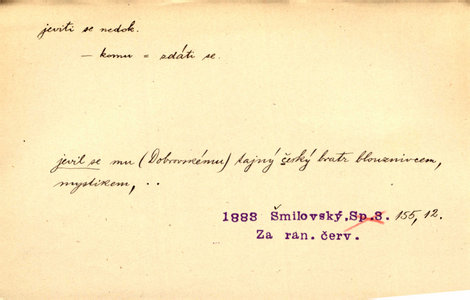 jeviti se nedok.
— komu = zdáti se.
jevil se mu (Dobrovskému) tajný český bratr blouznivcem,
mystikem, ..
1883 Šmilovský, Sp. 3. 155, 12.
Za ran. červ.